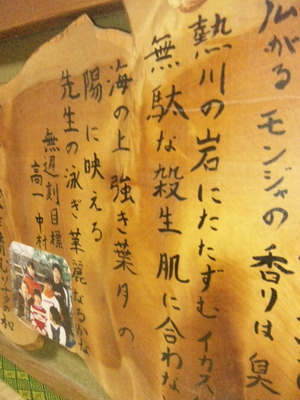 広がるモンジャの香りは臭
熱川の岩にたたずむイカス
無駄な殺生 肌に合わな
海の上 強き葉月の
陽に映える
先生の泳ぎ華麗なるかな
無遅刻目標
高一 中村